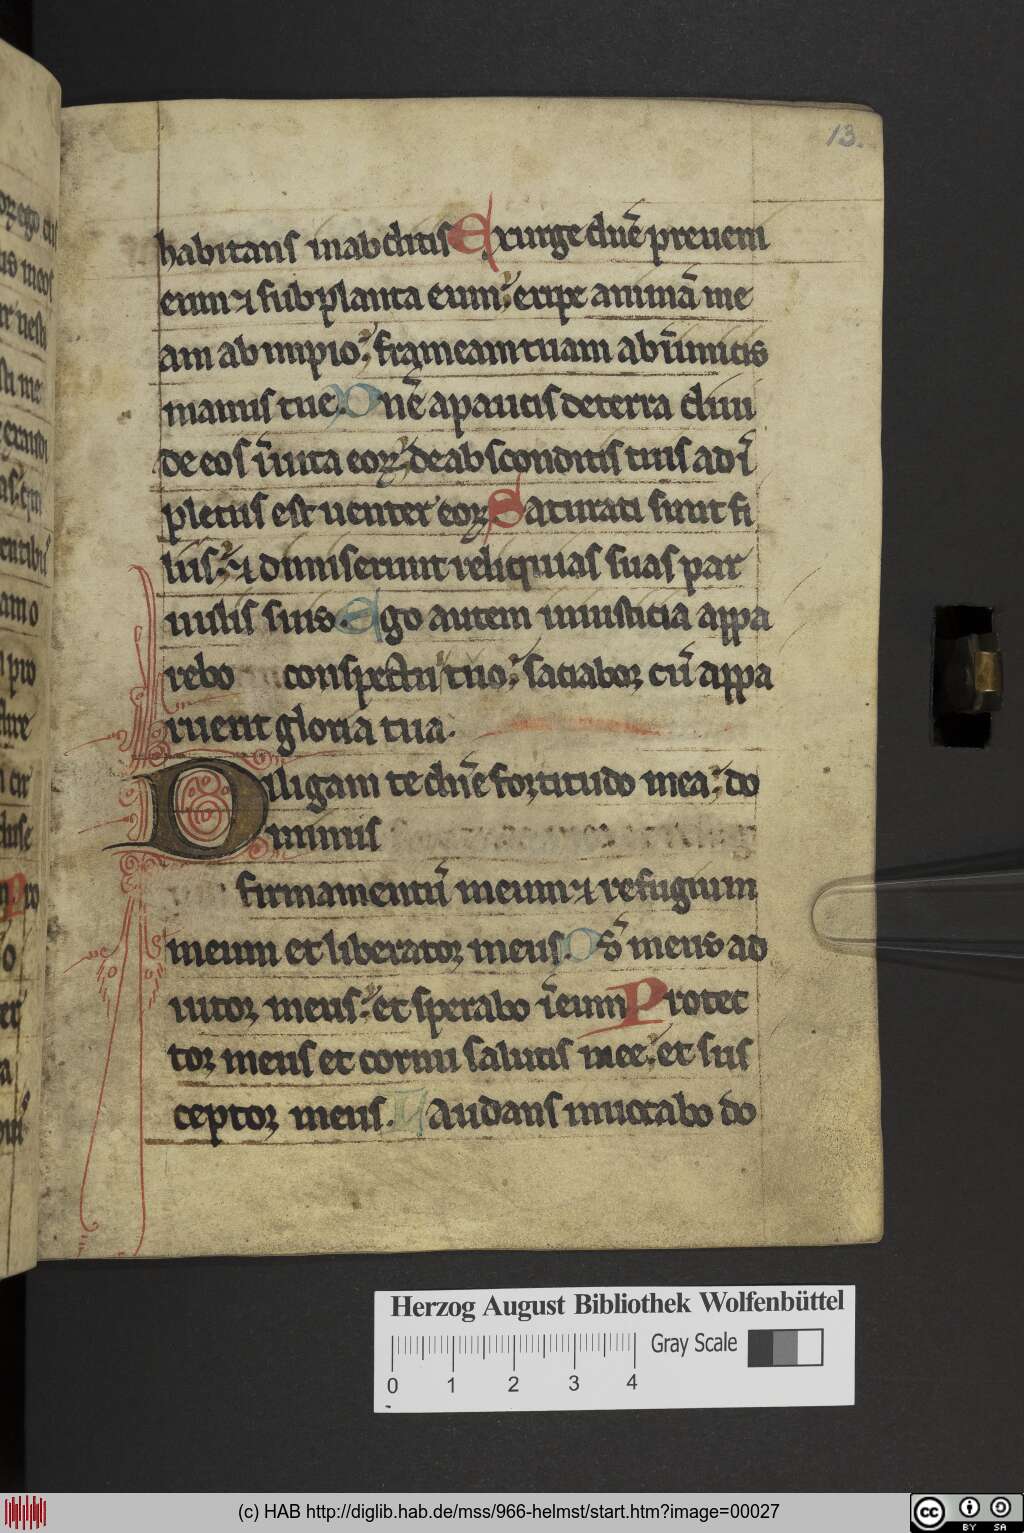 13.
habitans in abditis Exurge dn̄e preueni
eum ⁊ subplanta eum: eripe animā me
am ab impio: frameam tuam ab inimicis
manus tue. Dn̄e a paucis de terra diui
de eos ī uita eoꝝ: de absconditis tuis adī
pletus est uenter eoꝝ Saturati sunt fi
liis: ⁊ dimiserunt reliquias suas par
uulis suis. Ego autem in iusticia appa
rebo conspectui tuo: saciabor cū appa
ruerit gloria tua.
Diligam te dn̄e fortitudo mea: do
minus
firmamentū meum ⁊ refugium
meum et liberator meus. Ds̄ meus ad
iutor meus: et sperabo ī eum Protec
tor meus et cornu salutis mee: et sus
ceptor meus. Laudans inuocabo do
Herzog August Bibliothek Wolfenbüttel
Gray Scale
0 1 2 3 4
(c) HAB http://diglib.hab.de/mss/966-helmst/start.htm?image=00027
cc BY SA